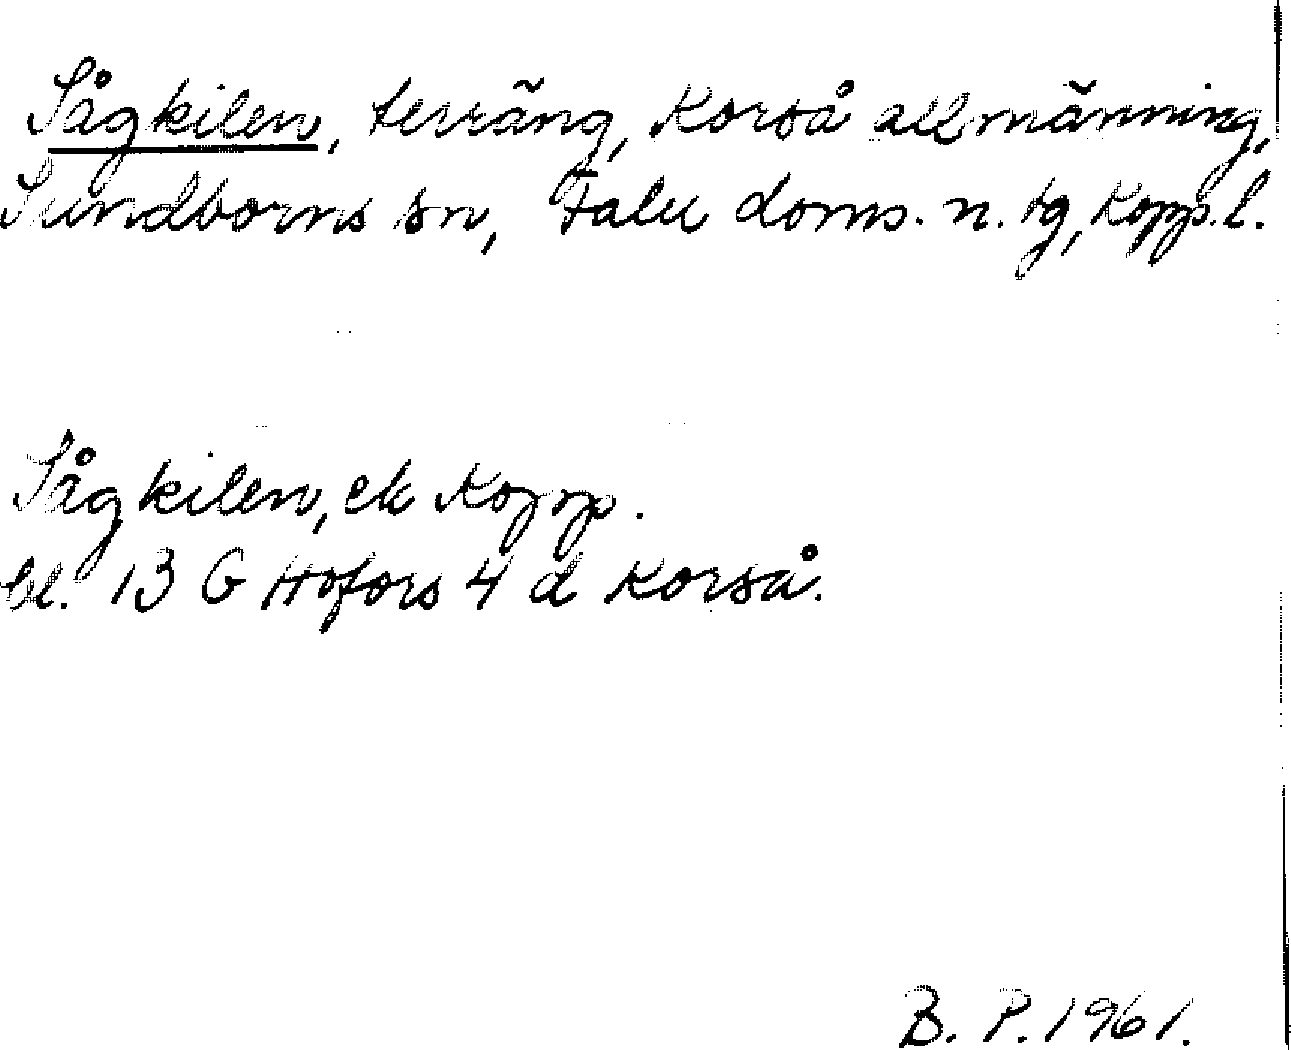 Sågkilen, terräng, Korså allmänning,
Sundborns sn, Falu doms. n. tg, Kopp. l.
Sågkilen, ek Kopp.
bl. 13 G Hofors 4 d Korså.
B. P. 1961.